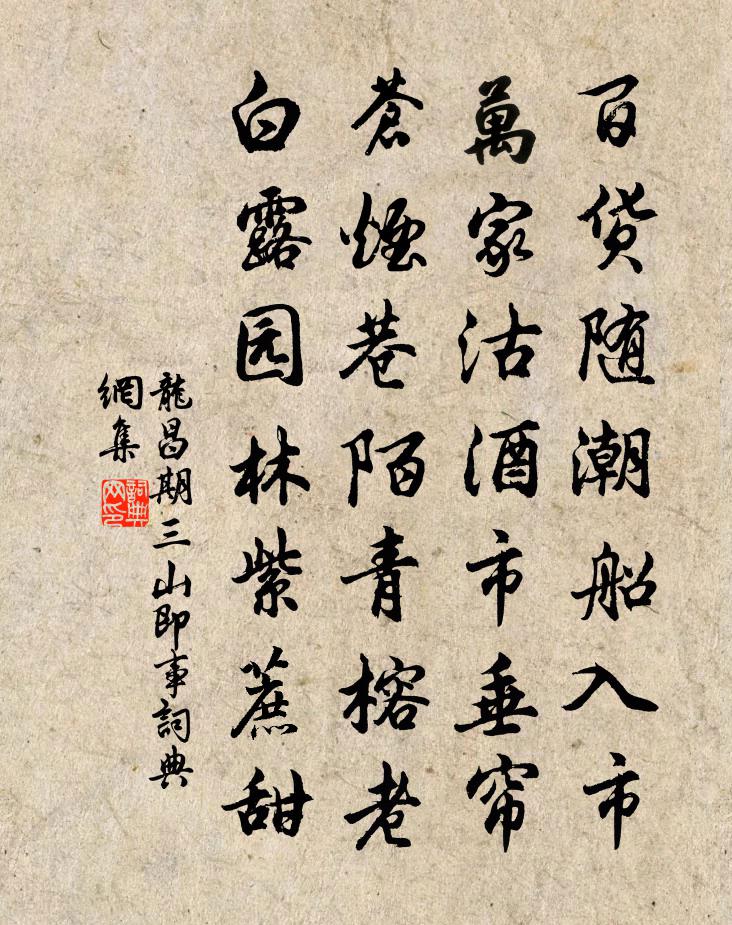 百货随潮船入市
萬家沽酒市垂帘
蒼煙巷陌青榕老
白露园林紫蔗甜
龍昌期三山即事詞典
網集
詞典
网印